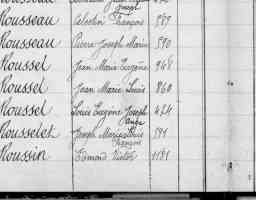 Joseph
Rousseau Celestin François 589
Rousseau Pierre Joseph Marin 590
Roussel Jean Marie Eugène 968
Roussel Jean Marie Louis 860
Roussel Louis Eugène Joseph 424
Ange
Rousselet Joseph Marie Louis 591
François
Roussin Edmond Victor 1181